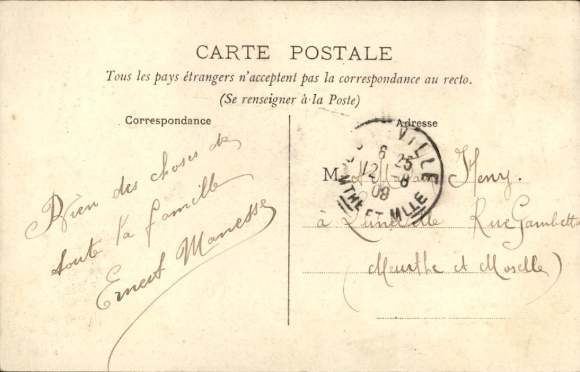 CARTE POSTALE
Tous les pays étrangers n'acceptent pas la correspondance au recto.
(Se renseigner à la Poste)
Correspondance
Bien des choses de
toute la famille
Ernest Manesse
Adresse
M. Henry.
à Lunéville Rue Gambetta
(Meurthe et Moselle)
VILLE
6 25
12 -8
09
MTHE ET MLLE